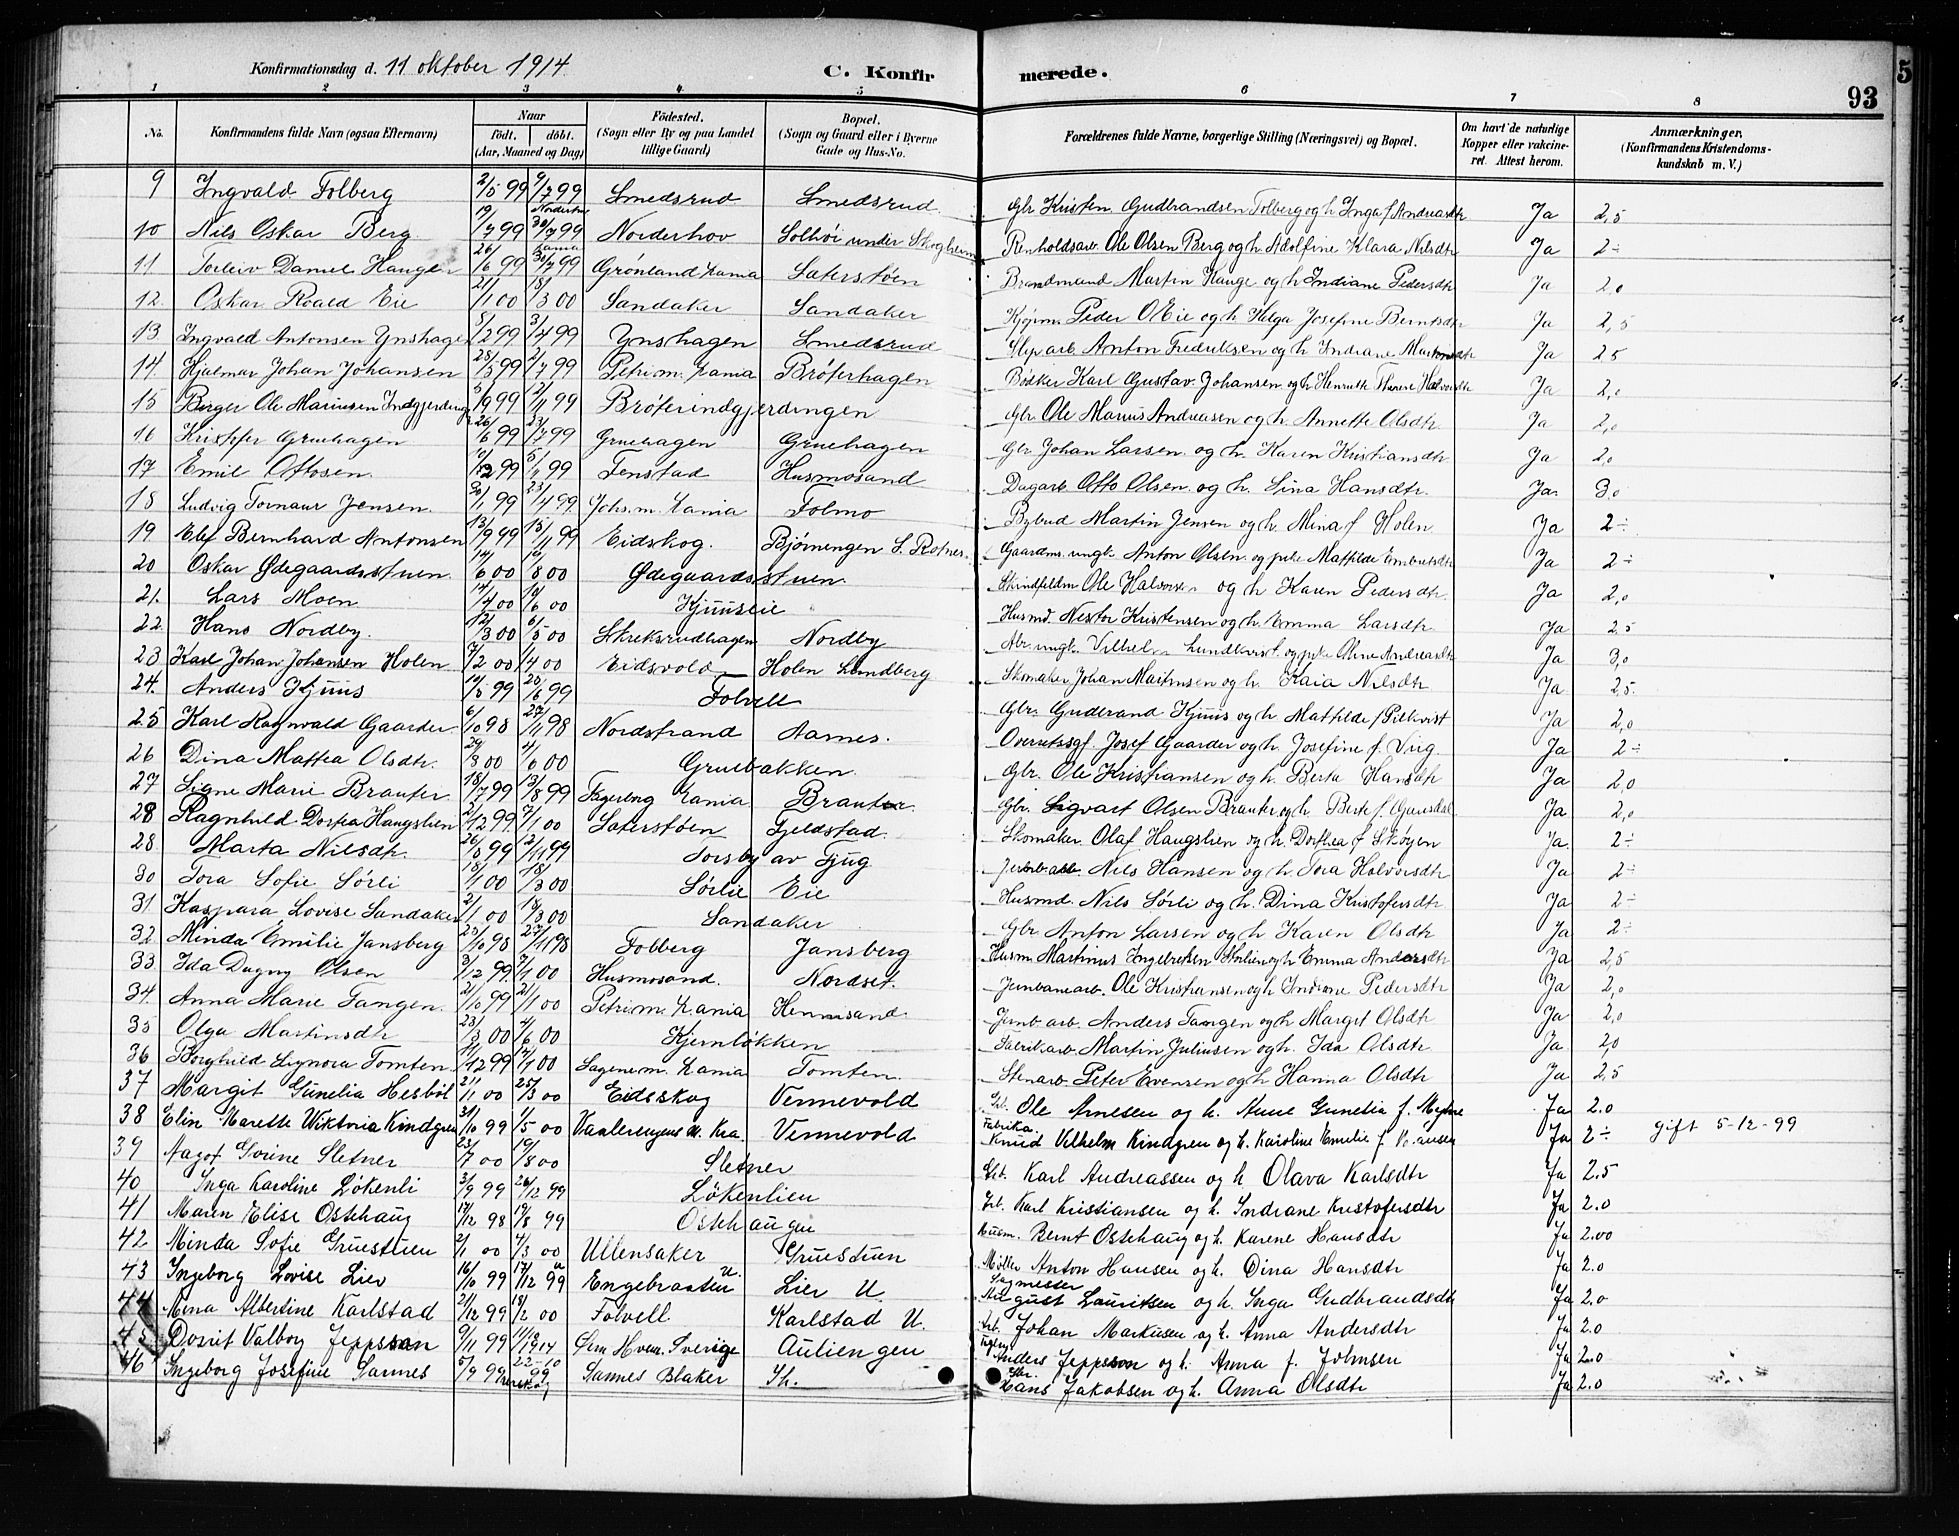 Konfirmationsdag d. 11 oktober 1914. C. Konfirmerede. 93
1 2 3 4 5 6 7 8
No. Konfirmandens fulde Navn (ogsaa Efternavn) Naar født. døbt. (Aar, Maaned og Dag) Fødested. (Sogn eller By og paa Landet tillige Gaard) Bopæl. (Sogn og Gaard eller i Byerne Gade og Hus-No. Forældrenes fulde Navne, borgerlige Stilling (Næringsvei) og Bopæl. Om havt de naturlige Kopper eller vakcineret. Attest herom. Anmærkninger. (Konfirmandens Kristendomskundskab m. V.)
9 Ingvald Folberg 2/5 99 9/7 99 Smedsrud Smedsrud Gbr Kristen Gudbrandsen Folberg og h Inga f Andreasdtr Ja 2,5
10 Nils Oskar Berg 19/7 99 30/7 99 Norderhov Solhøi under Skogheim Renholdsarb. Ole Olsen Berg og h Adolfine Klara Nilsdtr Ja 2÷
11 Torleiv Daniel Haugen 26/6 99 30/7 99 Grønland Kania Sæterstøen Brandmand Martin Hauge og h Indiane Pedersdtr Ja 2,0
12 Oskar Roald Eie 21/1 00 18/3 00 Sandaker Sandaker Kjøpm. Peder O Eie og h Helga Josefine Berntsdtr Ja 2,5
13 Ingvald Antonsen Ynshagen 5/2 99 3/4 99 Ynshagen Smedsrud Slip arb. Anton Fredriksen og h Indiane Martinsdtr Ja 2,5
14 Hjalmar Johan Johansen 28/5 99 2/7 99 Petri m. Kania Brøterhagen Bødker Karl Gustav Johansen og h Henriette Therese Halvorsdtr Ja 2,0
15 Birger Ole Mariusen Indgjerdingen 5/9 99 2/11 99 Brøterindgjerdingen Gbr Ole Marius Andreasen og h Annette Olsdtr Ja 2,0
16 Kristoffer Gruehagen 26/6 99 23/7 99 Gruehagen Gruehagen Gbr Johan Larsen og h Karen Kristiansdtr Ja 2,0
17 Emil Ottosen 99 99 Fenstad Husmosand Dagarb Otto Olsen og h. Lina Hansdtr Ja 3,0
18 Ludvig Tornaur Jensen 99 23/4 99 Johs. m. Kania Folmo Bybud Martin Jensen og h. Mina f Holen Ja 2÷
19 Elef Bernhard Antonsen 13/9 99 15/11 99 Eidskog. Bjørnengen S. Rotnes Gaardm. ungk. Anton Olsen og pike Mathilde Embretsdtr Ja 2÷
20 Oskar Ødegaardsstuen 6 00 8 00 Ødegaardsstuen Skindfeldm Ole Halvorsen og h Karen Pedersdtr Ja 2,0
21. Lars Moen 14/4 00 10/6 00 Kjuuseie Husmd. Nestor Kristensen og h. Emma Larsdtr Ja 2,5
22. Hans Nordby. 12/3 00 6/5 00 Skreksrudhagen Nordby Arb. ungk. Vilhelm Lundkvist og pike Oline Andreasdtr Ja 3,0
23 Karl Johan Johansen Holen 7/2 00 1/4 00 Eidsvold Holen Lundberg Skomaker Johan Martinsen og h. Kaia Nilsdtr Ja 2,5
24. Anders Kjuus 99 99 Folvell Gbr. Gudbrand Kjuus og h Mathilde f Pilkvist Ja 2,0
25 Karl Ragnvald Gaarder 6/10 98 27/11 98 Nordstrand Aarnes. Overretssgf. Josef Gaarder og h Josefine f. Vrig Ja 2÷
26 Dina Mattea Olsdtr. 29/3 00 4/6 00 Gruebakken Gbr. Ole Kristiansen og h. Berta Hansdtr Ja 2,0
27 Signe Marie Brauter 18/7 99 13/8 99 Fagereng Kania Brauter Gbr. Sigvart Olsen Brauter og h Berte f. Gunersdal Ja 2,0
28 Ragnhild Dortea Haugslien 2/12 99 7/1 00 Sæterstøen Fjeldstad Skomaker Olaf Haugslien og h. Dorthea f Skøyen Ja 2÷
28. Marta Nilsdtr. 26/8 99 12/11 99 Torsby av Fjug Jernb. arb. Nils Hansen og h. Tora Halvorsdtr Ja 2÷
30 Tora Sofie Sørli 18/1 00 18/3 00 Sørlie Eie Husmd. Nils Sørli og h. Dina Kristofersdtr Ja 2÷
31 Kaspara Lovise Sandaker 2/1 00 18/3 00 Sandaker Gbr Anton Larsen og h Karen Olsdtr Ja 2÷
32 Minda Emilie Jansberg 23/10 98 27/11 98 Folberg Jansberg Husm. Martinus Ingebretsen Storlien og h Emma Andersdtr Ja 2,5
33. Ida Dagny Olsen 3/12 99 7/1 00 Husmosand. Nordset. Jernbanearb. Ole Kristiansen og h Indiane Pedersdtr Ja 2,0
34. Anna Marie Tangen. 21/10 99 21/1 00 Petri m. Kania Hennisand. Jernb arb. Anders Tangen og h Margit Olsdtr Ja 2,0
35 Olga Martinsdtr 23/3 00 4/6 00 Kjernløkken Fabrikarb. Martin Juliusen og h. Ida Olsdtr Ja 2,0
36 Borghild Lynora Tomten 11/12 99 14/1 00 Sagene m. Kania Tomten Stenarb. Peter Evensen og h Hanna Olsdtr Ja 2,5
37 Margit Gunelia Hesbøl 21/11 00 25/3 00 Eidsskog Vennevold Gb. Ole Arnesen og h. Anne Gunelia f. Myhre Ja 2.0
38 Elin Marette Wiktoria Kindgren 31/10 99 1/5 00 Vaalerengens m. Kra. Vennevold Fabrika. Knud Vilhelm Kindgren og h. Karoline Emilie f Ja 2÷ gift 5-12-99
39 Aagot Gorine Sletner 23/7 00 19/8 00 Sletner Gb. Karl Andreassen og h Olava Karlsdtr Ja 2.5
40 Inga Karoline Løkenli 3/9 99 26/12 99 Løkenlien Gb. Karl Kristiansen og h. Indiane Kristofersdtr Ja 2.0
41 Maren Elise Ostehaug 17/12 98 99 Ostehaugen Husm. Bernt Ostehaug og h. Karene Hansdtr Ja 2.00
42 Minda Sofie Gruestuen 2/1 00 4/3 00 Ullensaker Gruestuen Møller Anton Hansen og h. Dina Hansdtr Ja 2.0
43 Ingeborg Lovise Lier 16/10 99 17/12 99 Engebraaten U. Lier U. Sagmester August Lauritsen og h. Inga Gudbrandsdtr Ja 2.0
44 Mena Albertine Karlstad 21/12 99 18/2 00 Folvell Karlstad U. Arb. Johan Markusen og h. Anna Andersdtr Ja 2.0
45 Dorit Valborg Jeppsson 9/11 99 1914 Gim Hvam. Sverige Auliengen Anders Jeppsson og h. Anna f. Johnsen Ja 2.0
46 Ingeborg Josefine Sannes 5/9 99 22-10 99 Sannes Blaker Sk. Gbr. Hans Jakobsen og h. Anna Olsdtr Ja 2.0